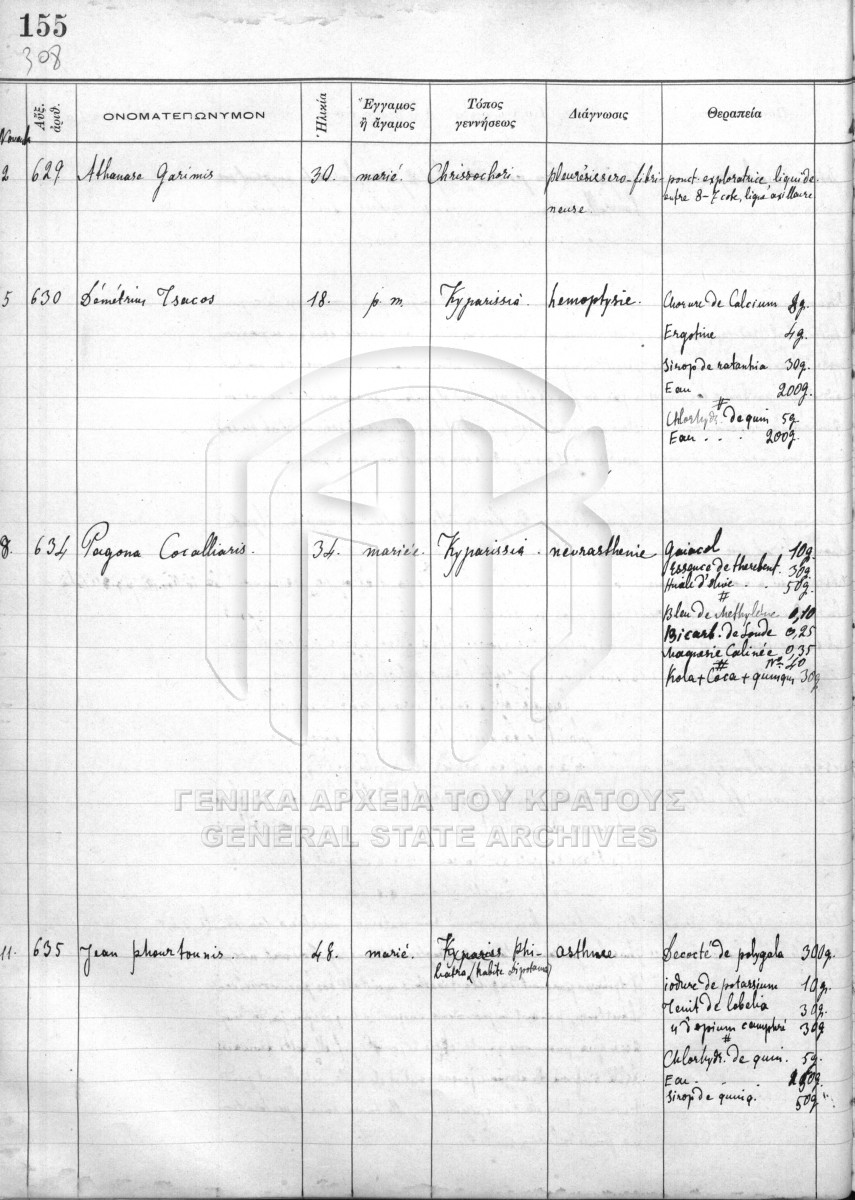 155
308
Αὔξ. ἀριθ.
ΟΝΟΜΑΤΕΠΩΝΥΜΟΝ
Ἡλικία
Ἔγγαμος ἢ ἄγαμος
Τόπος γεννήσεως
Διάγνωσις
Θεραπεία
2 629 Athanase Garimis 30. marié. Chrissochori. pleurésie sero-fibri- ponct. exploratrice, liquide
neuse. entre 8-7 cote, ligne axillaire
5 630 Démétrius Tsacos 18. p. m. Kyparissia hemoptysie. Chorure de Calcium 8g.
Ergotine 4g.
Sirop de ratanhia 30g.
Eau 200g.
#
Chlorhydr. de quin 5g
Eau . . . 200g.
8. 634 Pagona Cocalliaris. 34. mariée. Kyparissia. nevrasthenie Gaiacol 10g
Essence de therebent. 30g
Huile d'olive . . 50g.
#
Bleu de Methylène 0,10
Bicarb. de Soude 0,25
Magnesie Calinée 0,35
# Nº 40
Kola + Coca + quinqui 30g
11. 635 Jean phourtounis. 48. marié. Kypariss Phi- asthme Decocté de polygala 300g.
liatra (habite Sipotama)
iodure de potassium 10g.
Teint de lobelia 30g.
" d'opium camphré 30g
#
Chlorhydr. de quin. 5g.
Eau . . . 250g.
Sirop de quinq. 50g.
ΓΕΝΙΚΑ ΑΡΧΕΙΑ ΤΟΥ ΚΡΑΤΟΥΣ
GENERAL STATE ARCHIVES